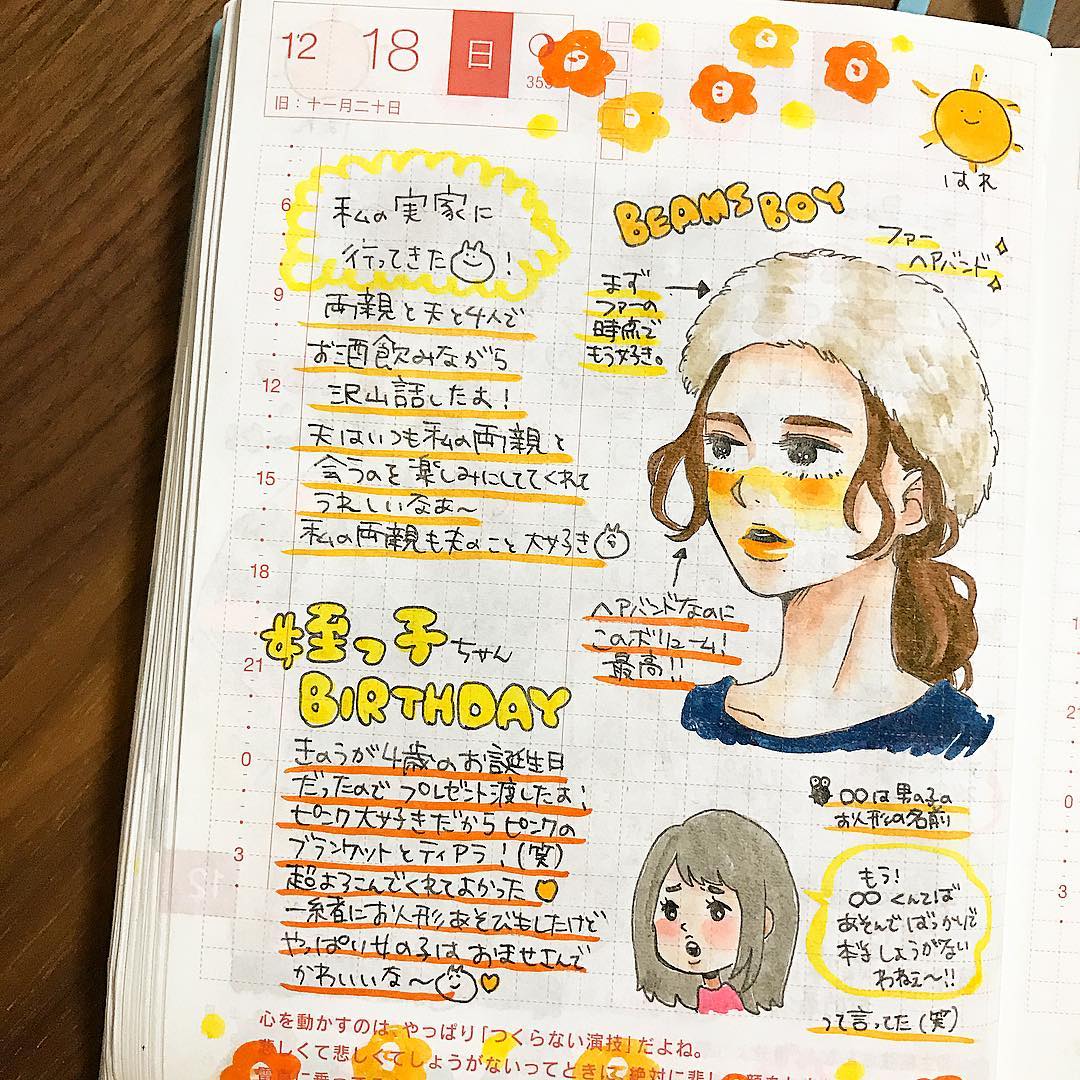 12 18 日
35
旧：十一月二十日
はれ
6
9
12
15
18
21
0
3
私の実家に
行ってきた！
両親と夫と4人で
お酒飲みながら
沢山話したよ！
夫はいつも私の両親と
会うのを楽しみにしててくれて
うれしいなぁ〜
私の両親も夫のこと大好き
BEAMS BOY
ファー
ヘアバンド
まず
ファーの
時点で
もう好き。
ヘアバンドなのに
このボリューム！
最高!!
#姪っ子ちゃん
BIRTHDAY
きのうが4歳のお誕生日
だったのでプレゼント渡したよ！
ピンク大好きだからピンクの
ブランケットとティアラ！(笑)
超よろこんでくれてよかった
一緒にお人形あそびもしたけど
やっぱり女の子はおませさんで
かわいいな〜
〇〇は男の子の
お人形の名前
もう！
〇〇くんてば
あそんでばっかで
本当しょうがない
わねぇ〜!!
って言ってた(笑)
12
心を動かすのは、やっぱり「つくらない演技」だよね。
悲しくて悲しくてしょうがないってときに、絶対に悲しい
3
0